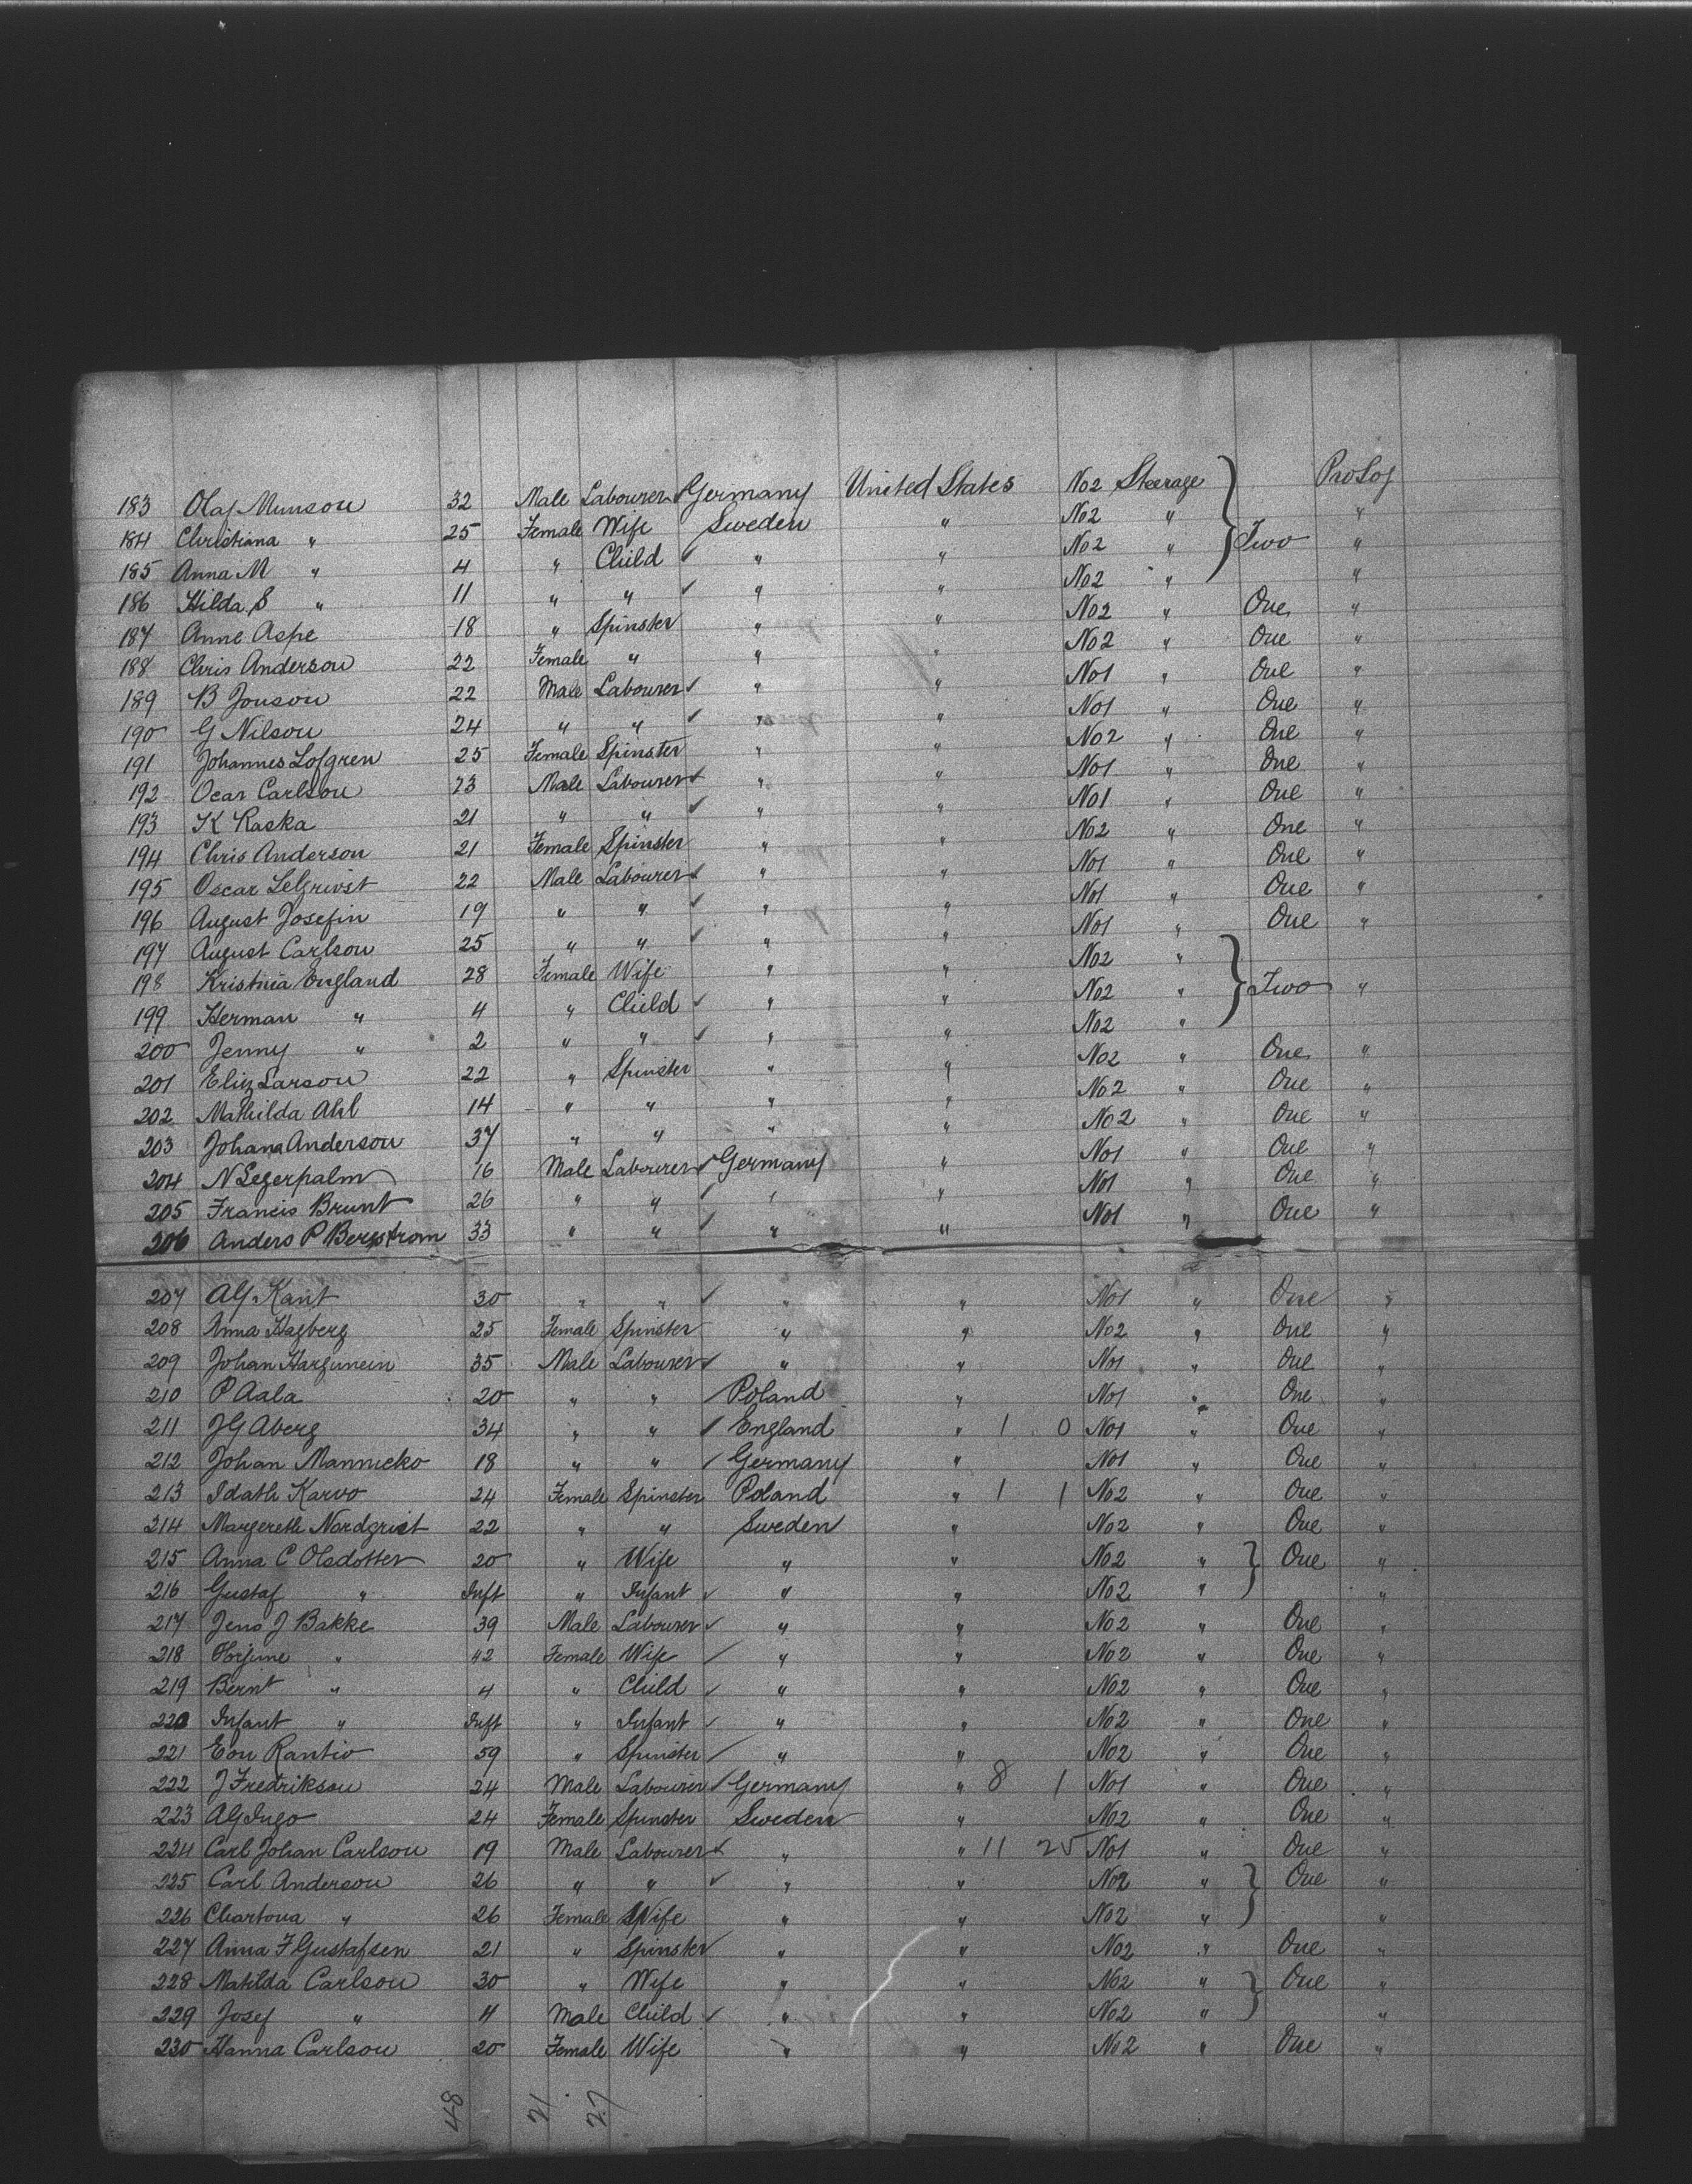 183 Olaf Munson 32 Male Labourer ✓ Germany United States No2 Steerage ProLog
184 Christiana " 25 Female Wife Sweden " No2 " "
185 Anna M " 4 " Child ✓ " " No2 " Two "
186 Hilda S " 11 " " ✓ " " No2 " "
187 Anne Aspe 18 " Spinster " " No2 " One "
188 Chris Anderson 22 Female " " " No2 " One "
189 B Jonson 22 Male Labourer ✓ " " No1 " One "
190 G Nilson 24 " " ✓ " " No1 " One "
191 Johannes Lofgren 25 Female Spinster " " No2 " One "
192 Ocar Carlson 23 Male Labourer ✓ " " No1 " One "
193 K Raska 21 " " ✓ " " No1 " One "
194 Chris Anderson 21 Female Spinster " " No2 " One "
195 Oscar Lelqrivst 22 Male Labourer ✓ " " No1 " One "
196 August Josefin 19 " " ✓ " " No1 " One "
197 August Carlson 25 " " ✓ " " No1 " One "
198 Kristina England 28 Female Wife " " No2 "
199 Herman " 4 " Child ✓ " " No2 " Two "
200 Jenny " 2 " " ✓ " " No2 "
201 Eliz Larson 22 " Spinster " " No2 " One "
202 Mathilda Ahl 14 " " " " No2 " One "
203 Johana Anderson 37 " " " " No2 " One "
204 N Segerpalm 16 Male Labourer ✓ Germany " No1 " One "
205 Francis Brunt 26 " " ✓ " " No1 " One "
206 Anders P Bergstrom 33 " " ✓ " " No1 " One "
207 Alf Kant 30 " " ✓ " " No1 " One "
208 Anna Hagberg 25 Female Spinster " " No2 " One "
209 Johan Hargunein 35 Male Labourer ✓ " " No1 " One "
210 P Aala 20 " " Poland " No1 " One "
211 JG Aberg 34 " " ✓ England " 1 0 No1 " One "
212 Johan Mannicko 18 " " ✓ Germany " No1 " One "
213 Idath Karvo 24 Female Spinster Poland " 1 1 No2 " One "
214 Margereth Nordqrist 22 " " Sweden " No2 " One "
215 Anna C Olsdotter 20 " Wife " " No2 " One "
216 Gustaf " Inft " Infant ✓ " " No2 " "
217 Jens J Bakke 39 Male Labourer ✓ " " No2 " One "
218 " 42 Female Wife ✓ " " No2 " One "
219 Bernt " 4 " Child ✓ " " No2 " One "
220 Infant " Inft " Infant ✓ " " No2 " One "
221 Eou Rantio 59 " Spinster ✓ " " No2 " One "
222 J Fredrikson 24 Male Labourer ✓ Germany " 8 1 No1 " One "
223 Alf Ingo 24 Female Spinster Sweden " No2 " One "
224 Carl Johan Carlson 19 Male Labourer ✓ " " 11 25 No1 " One "
225 Carl Anderson 26 " " ✓ " " No2 " One "
226 Chartona " 26 Female Wife " " No2 " "
227 Anna F Gustafsen 21 " Spinster ✓ " " No2 " One "
228 Matilda Carlson 30 " Wife " " No2 " One "
229 Josef " 4 Male Child ✓ " " No2 " "
230 Hanna Carlson 20 Female Wife " " No2 " One "
48 21 27